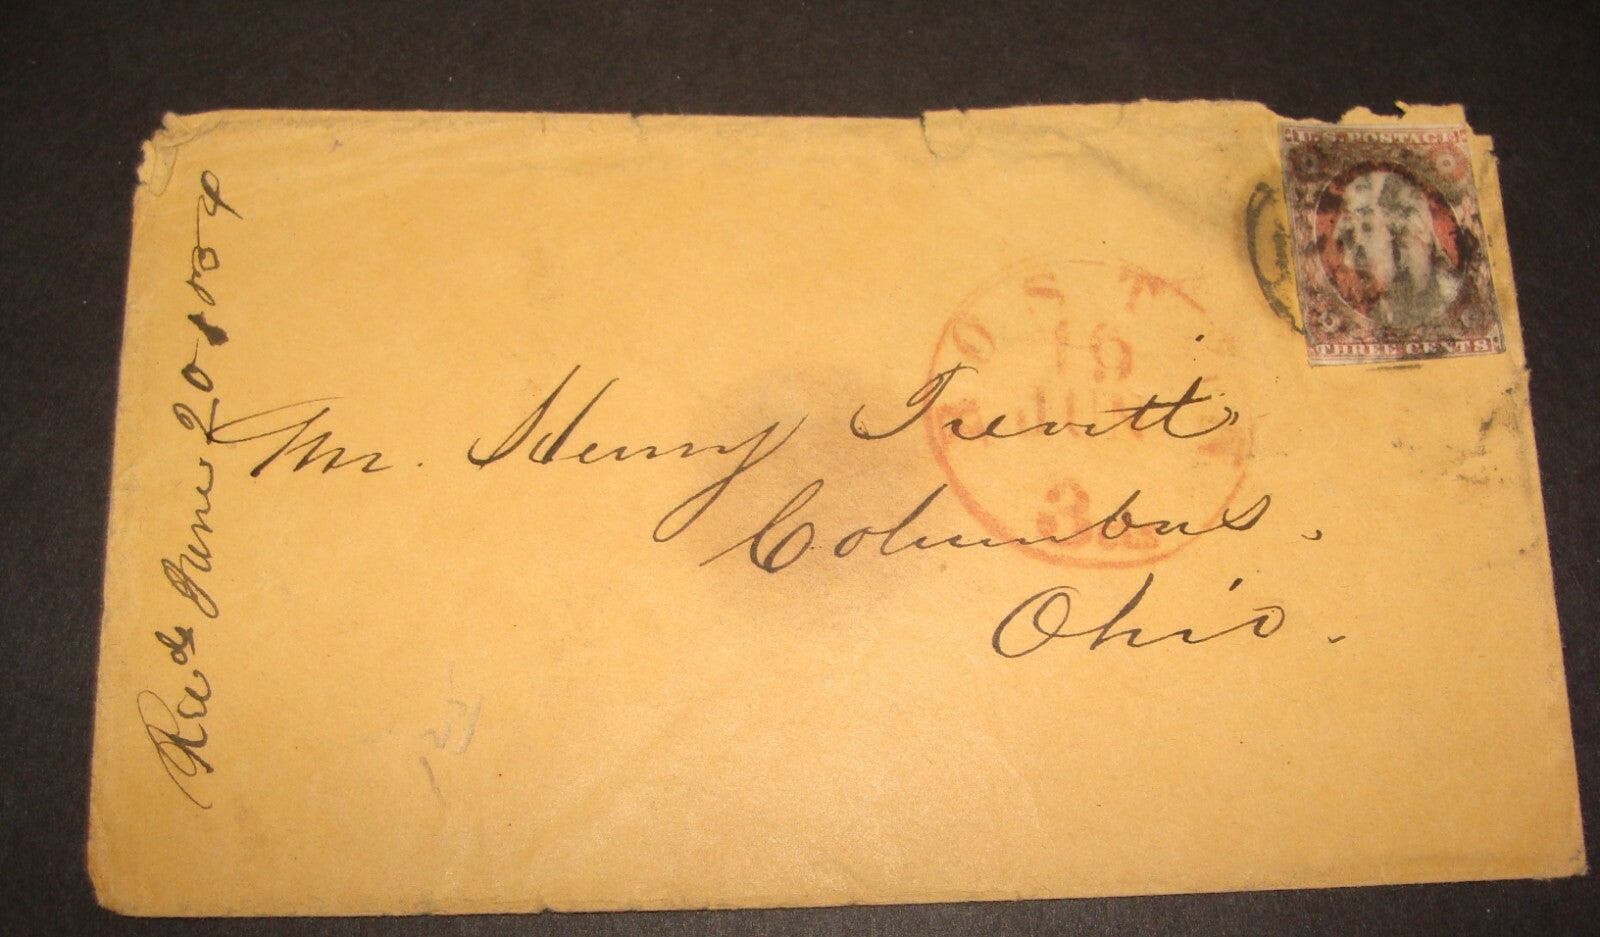 U.S. POSTAGE
THREE CENTS
3
Mr. Henry Trevitt
Columbus.
Ohio.
Recd June 20 1854